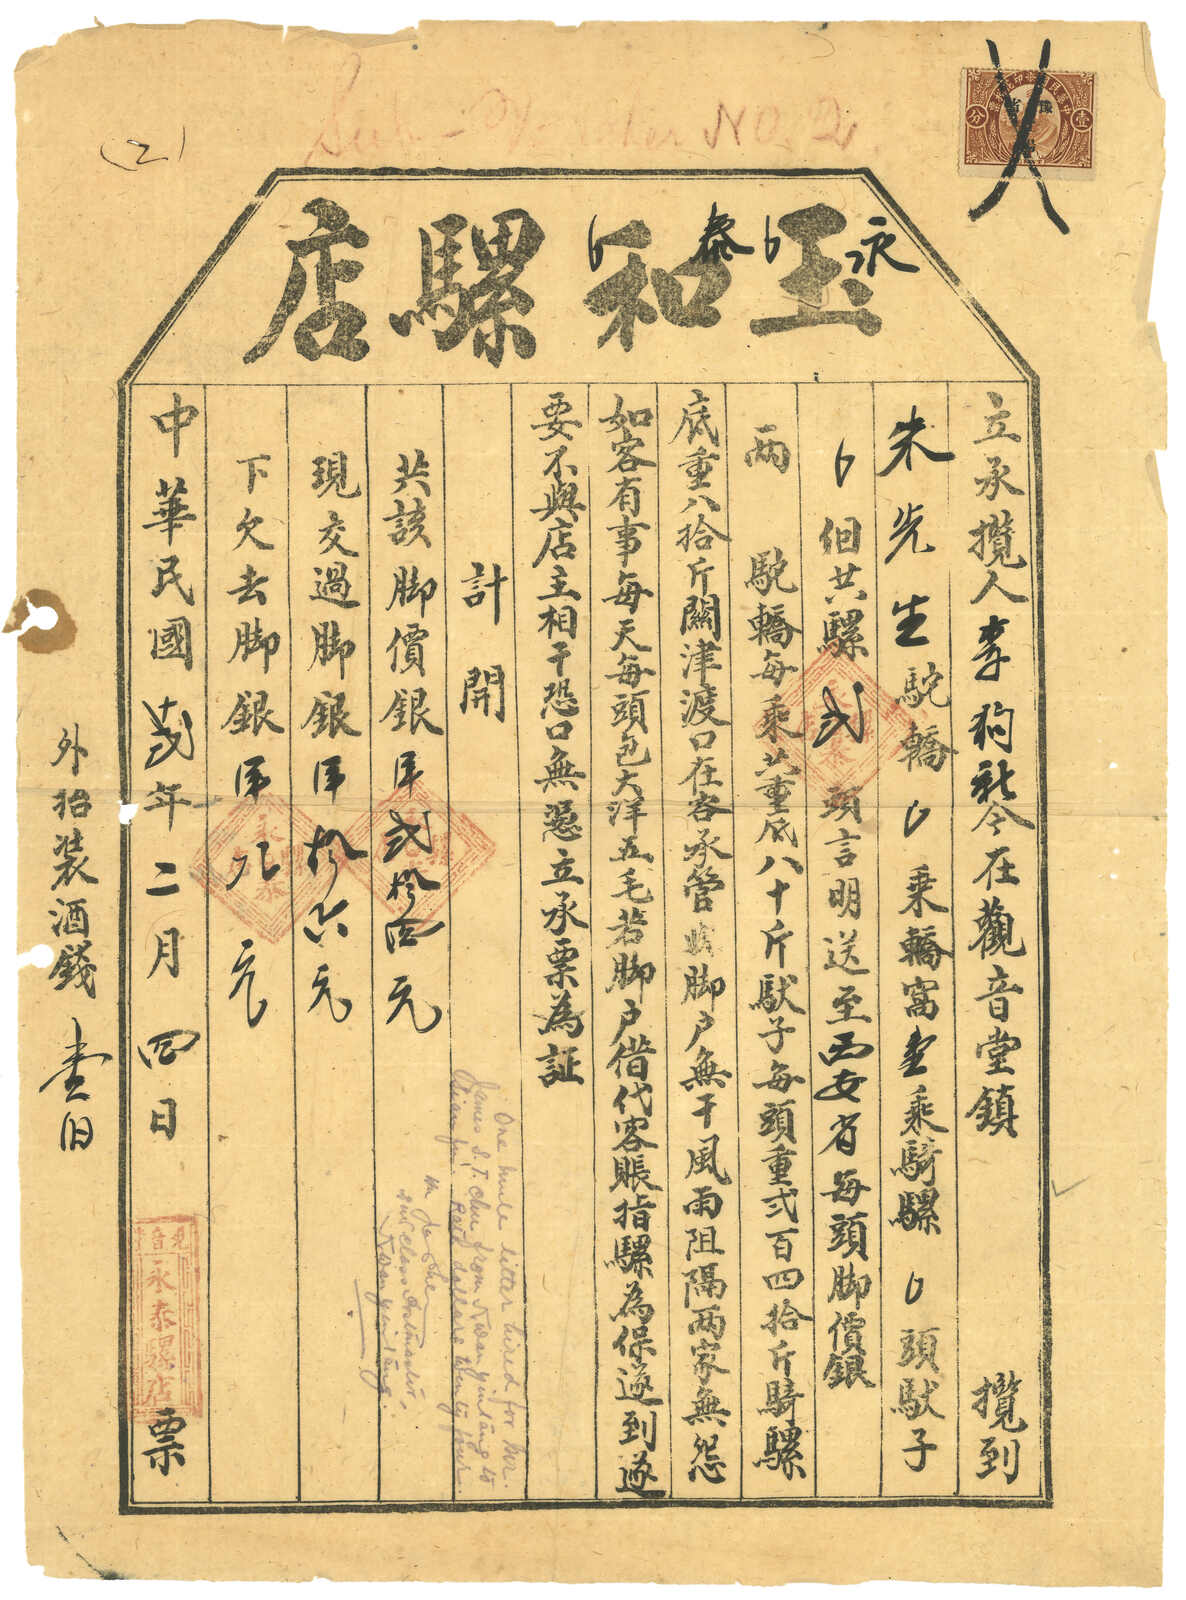 (2)
Sub-Voucher NO. 2.
壹分
豫省
玉和騾店
永泰
立承攬人李狗社今在觀音堂鎮 攬到
朱先生駝轎 乘轎窩壹乘騎騾 頭馱子
佃共騾貳頭言明送至西安省每頭脚價銀
兩 駝轎每乘共重底八十斤馱子每頭重弍百四拾斤騎騾
底重八拾斤關津渡口在客承管 脚户無干風雨阻隔兩家無怨
如客有事每天每頭包大洋五毛若脚户借代客賬指騾為保遂到遂
要不與店主相干恐口無憑立承票為証
計開
共該脚價銀洋貳拾四元
現交過脚銀洋拾六元
下欠去脚銀洋八元
中華民國十弍年二月四日 票
外抬裝酒錢壹
永泰騾店
永泰
One mule litter hired for Mr.
James S. T. Chu from Kwanyintang to
Sianfu. Paid dollars twenty four
Kwanyintang.